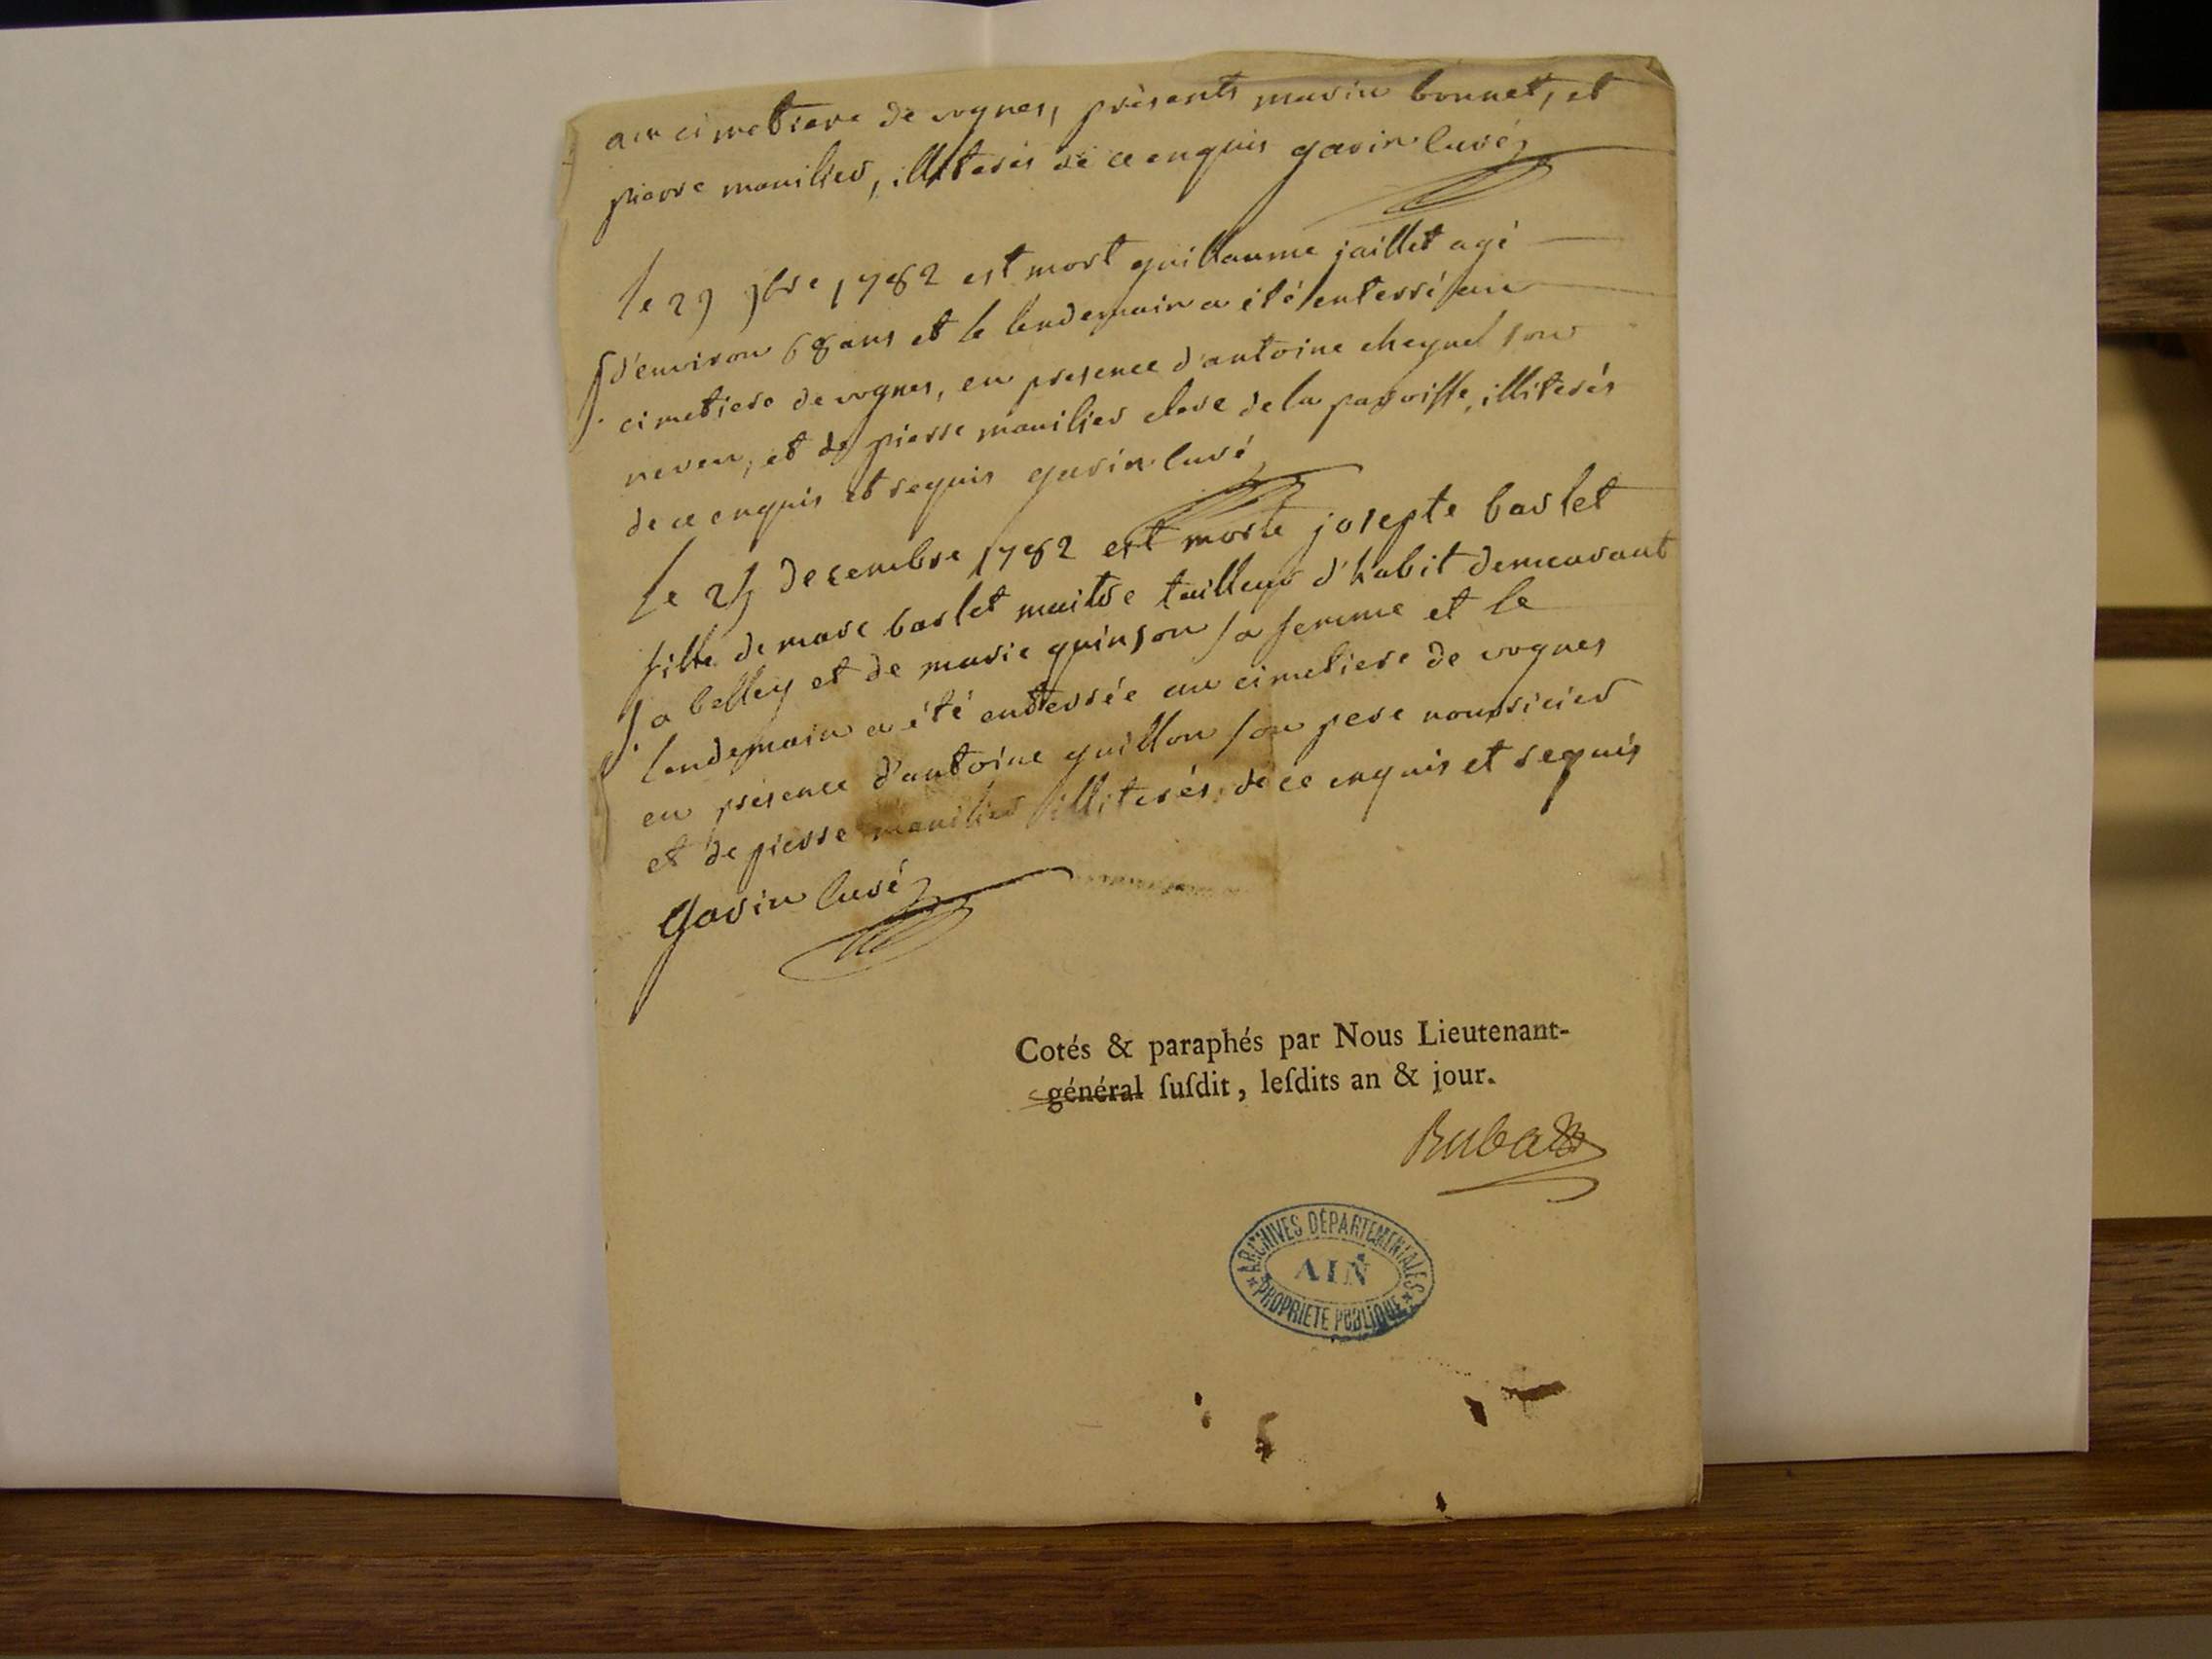 au cimetiere de vognes, présents marin bonnet, et
pierre manilier, illiterés de ce enquis gavin curé
le 29 9bre 1782 est mort guillaume jaillet agé
d'environ 68 ans et le lendemain a été enterré au
cimetiere de vognes, en presence d'antoine cheynel son
neveu, et de pierre manilier clerc de la paroisse, illiterés
de ce enquis et requis gavin curé
le 24 decembre 1782 est morte josepte barlet
fille de marc barlet maitre tailleur d'habit demeurant
a belley et de marie guinson sa femme et le
lendemain a été enterrée au cimetiere de vognes
en présence d'antoine guillon son pere nourricier
et de pierre manilier illiterés de ce enquis et requis
Gavin curé
Cotés & paraphés par Nous Lieutenant-
général ſuſdit, leſdits an & jour.
Rubat
ARCHIVES DÉPARTEMENTALES
AIN
PROPRIETE PUBLIQUE